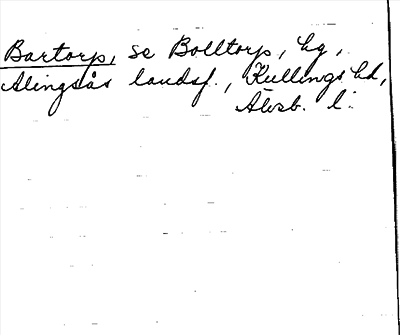 Bartorp, se Bolltorp, hg,
Alingsås landsf., Kullings hd,
Älvsb. l.